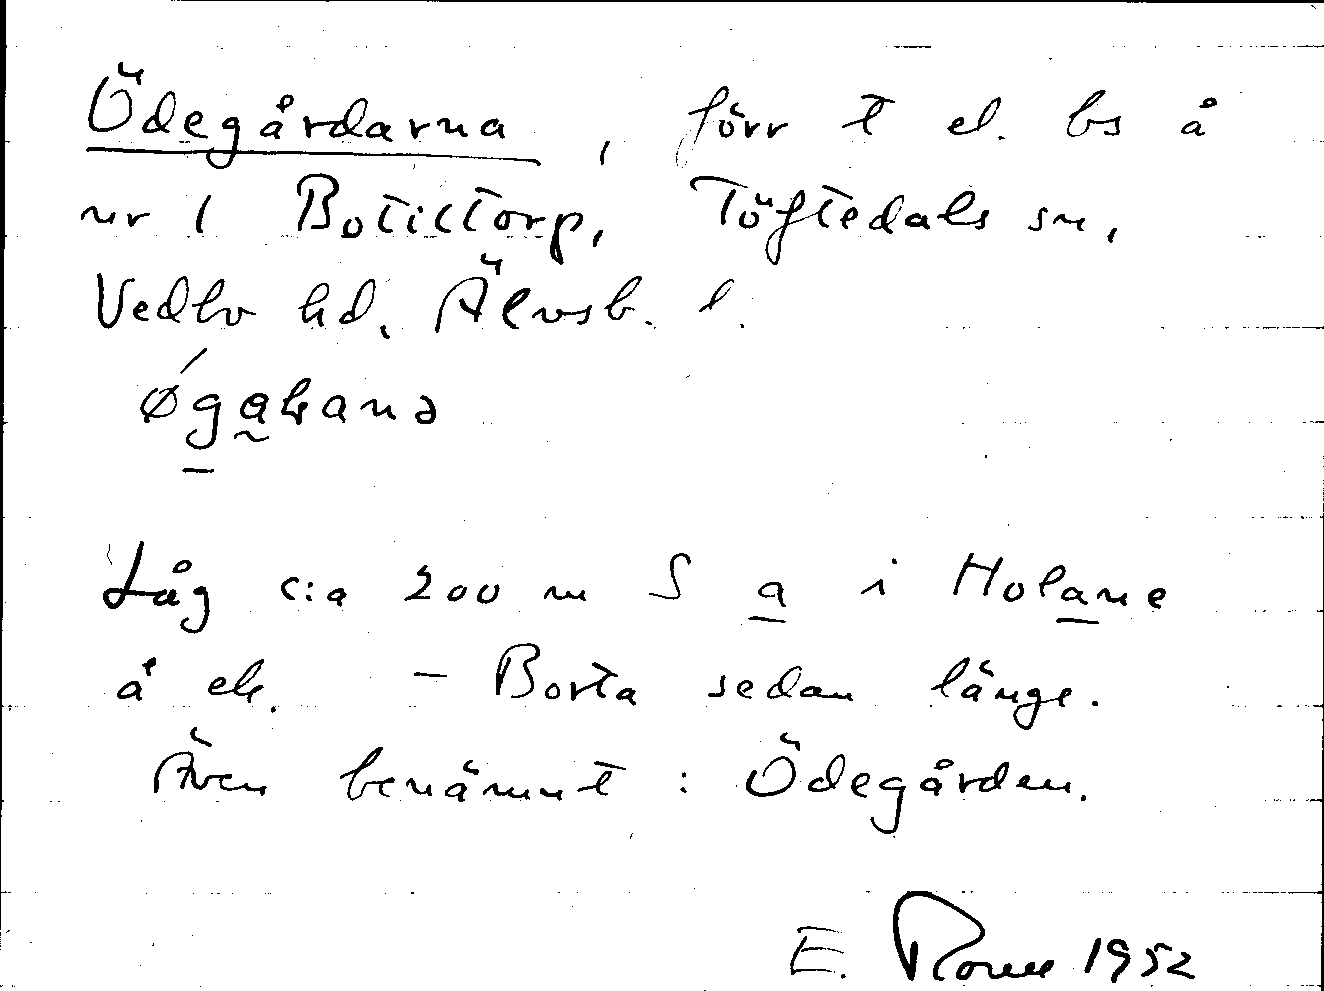 Ödegårdarna, förr t el. bs å
nr 1 Botictorp, Töftedals sn,
Vedbo hd, Älvsb. l.
Låg c:a 200 m S a i Holane
å ek. - Borta sedan länge.
Även benämnt : Ödegården.
E. 1952